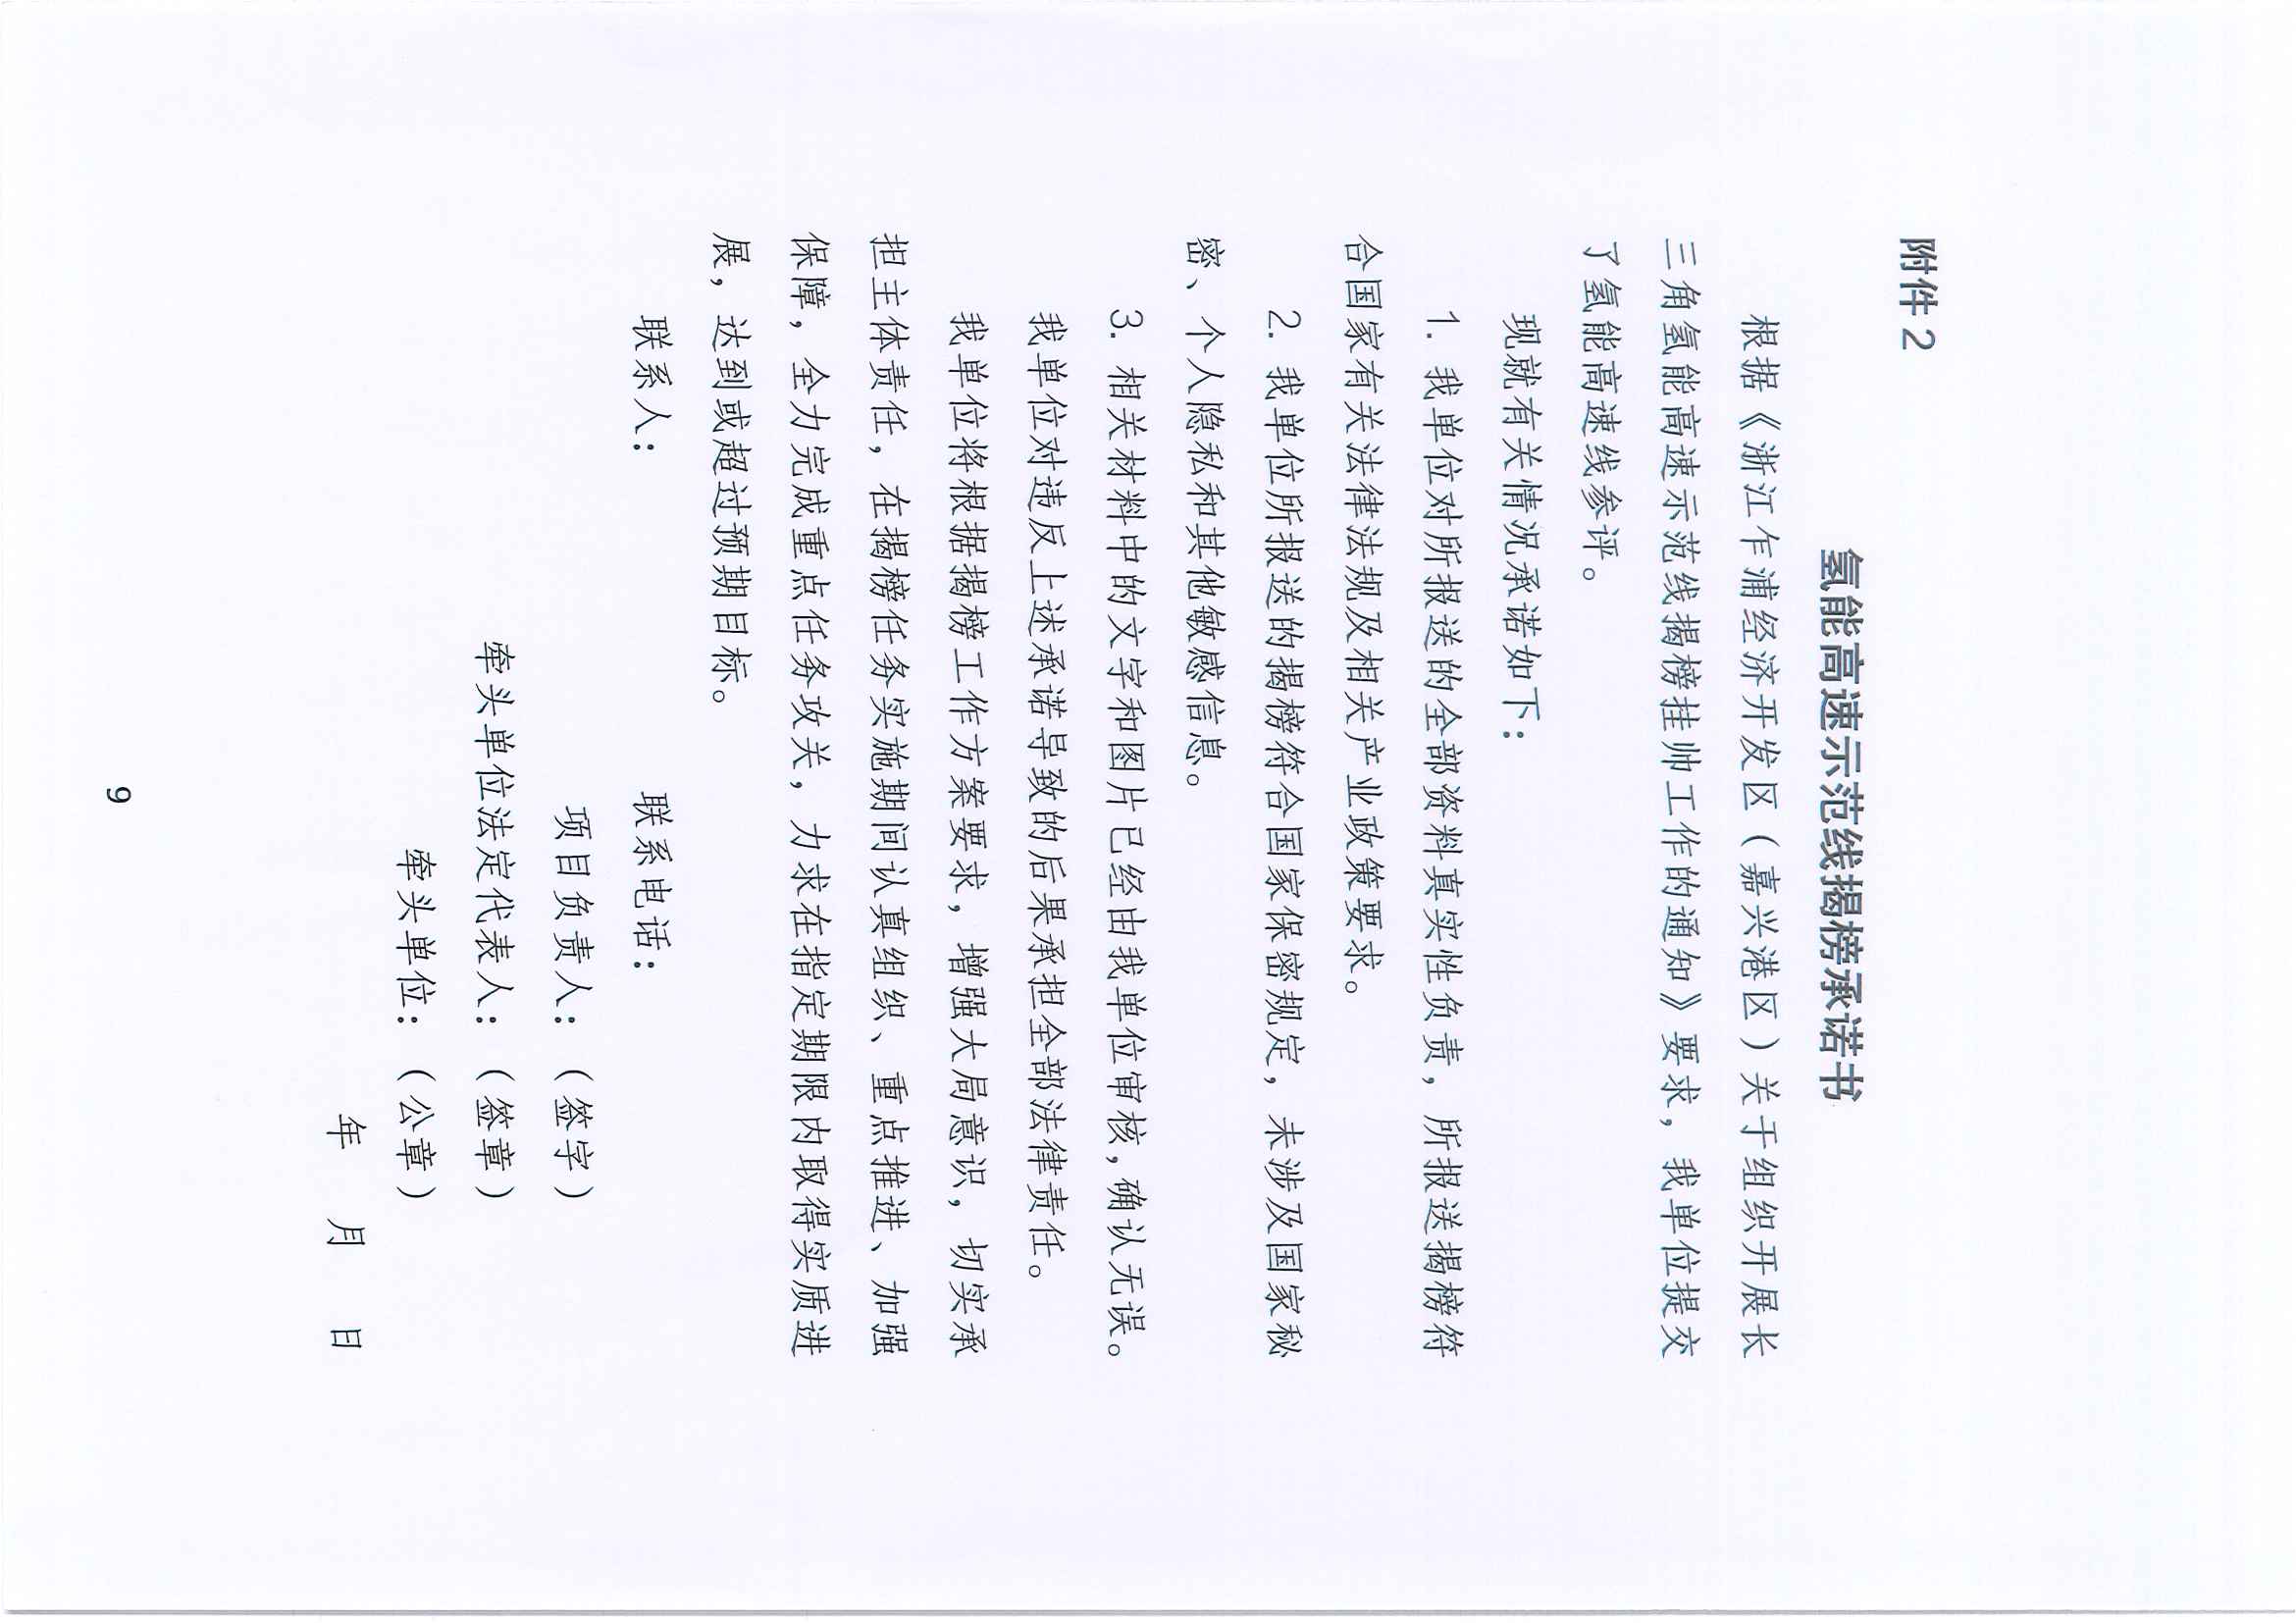 附件 2
氢能高速示范线揭榜承诺书
根据《浙江乍浦经济开发区（嘉兴港区）关于组织开展长
三角氢能高速示范线揭榜挂帅工作的通知》要求，我单位提交
了氢能高速线参评。
现就有关情况承诺如下：
1. 我单位对所报送的全部资料真实性负责，所报送揭榜符
合国家有关法律法规及相关产业政策要求。
2. 我单位所报送的揭榜符合国家保密规定，未涉及国家秘
密、个人隐私和其他敏感信息。
3. 相关材料中的文字和图片已经由我单位审核,确认无误。
我单位对违反上述承诺导致的后果承担全部法律责任。
我单位将根据揭榜工作方案要求，增强大局意识，切实承
担主体责任，在揭榜任务实施期间认真组织、重点推进、加强
保障，全力完成重点任务攻关，力求在指定期限内取得实质进
展，达到或超过预期目标。
联系人： 联系电话：
项目负责人：（签字）
牵头单位法定代表人：（签章）
牵头单位：（公章）
年 月 日
9